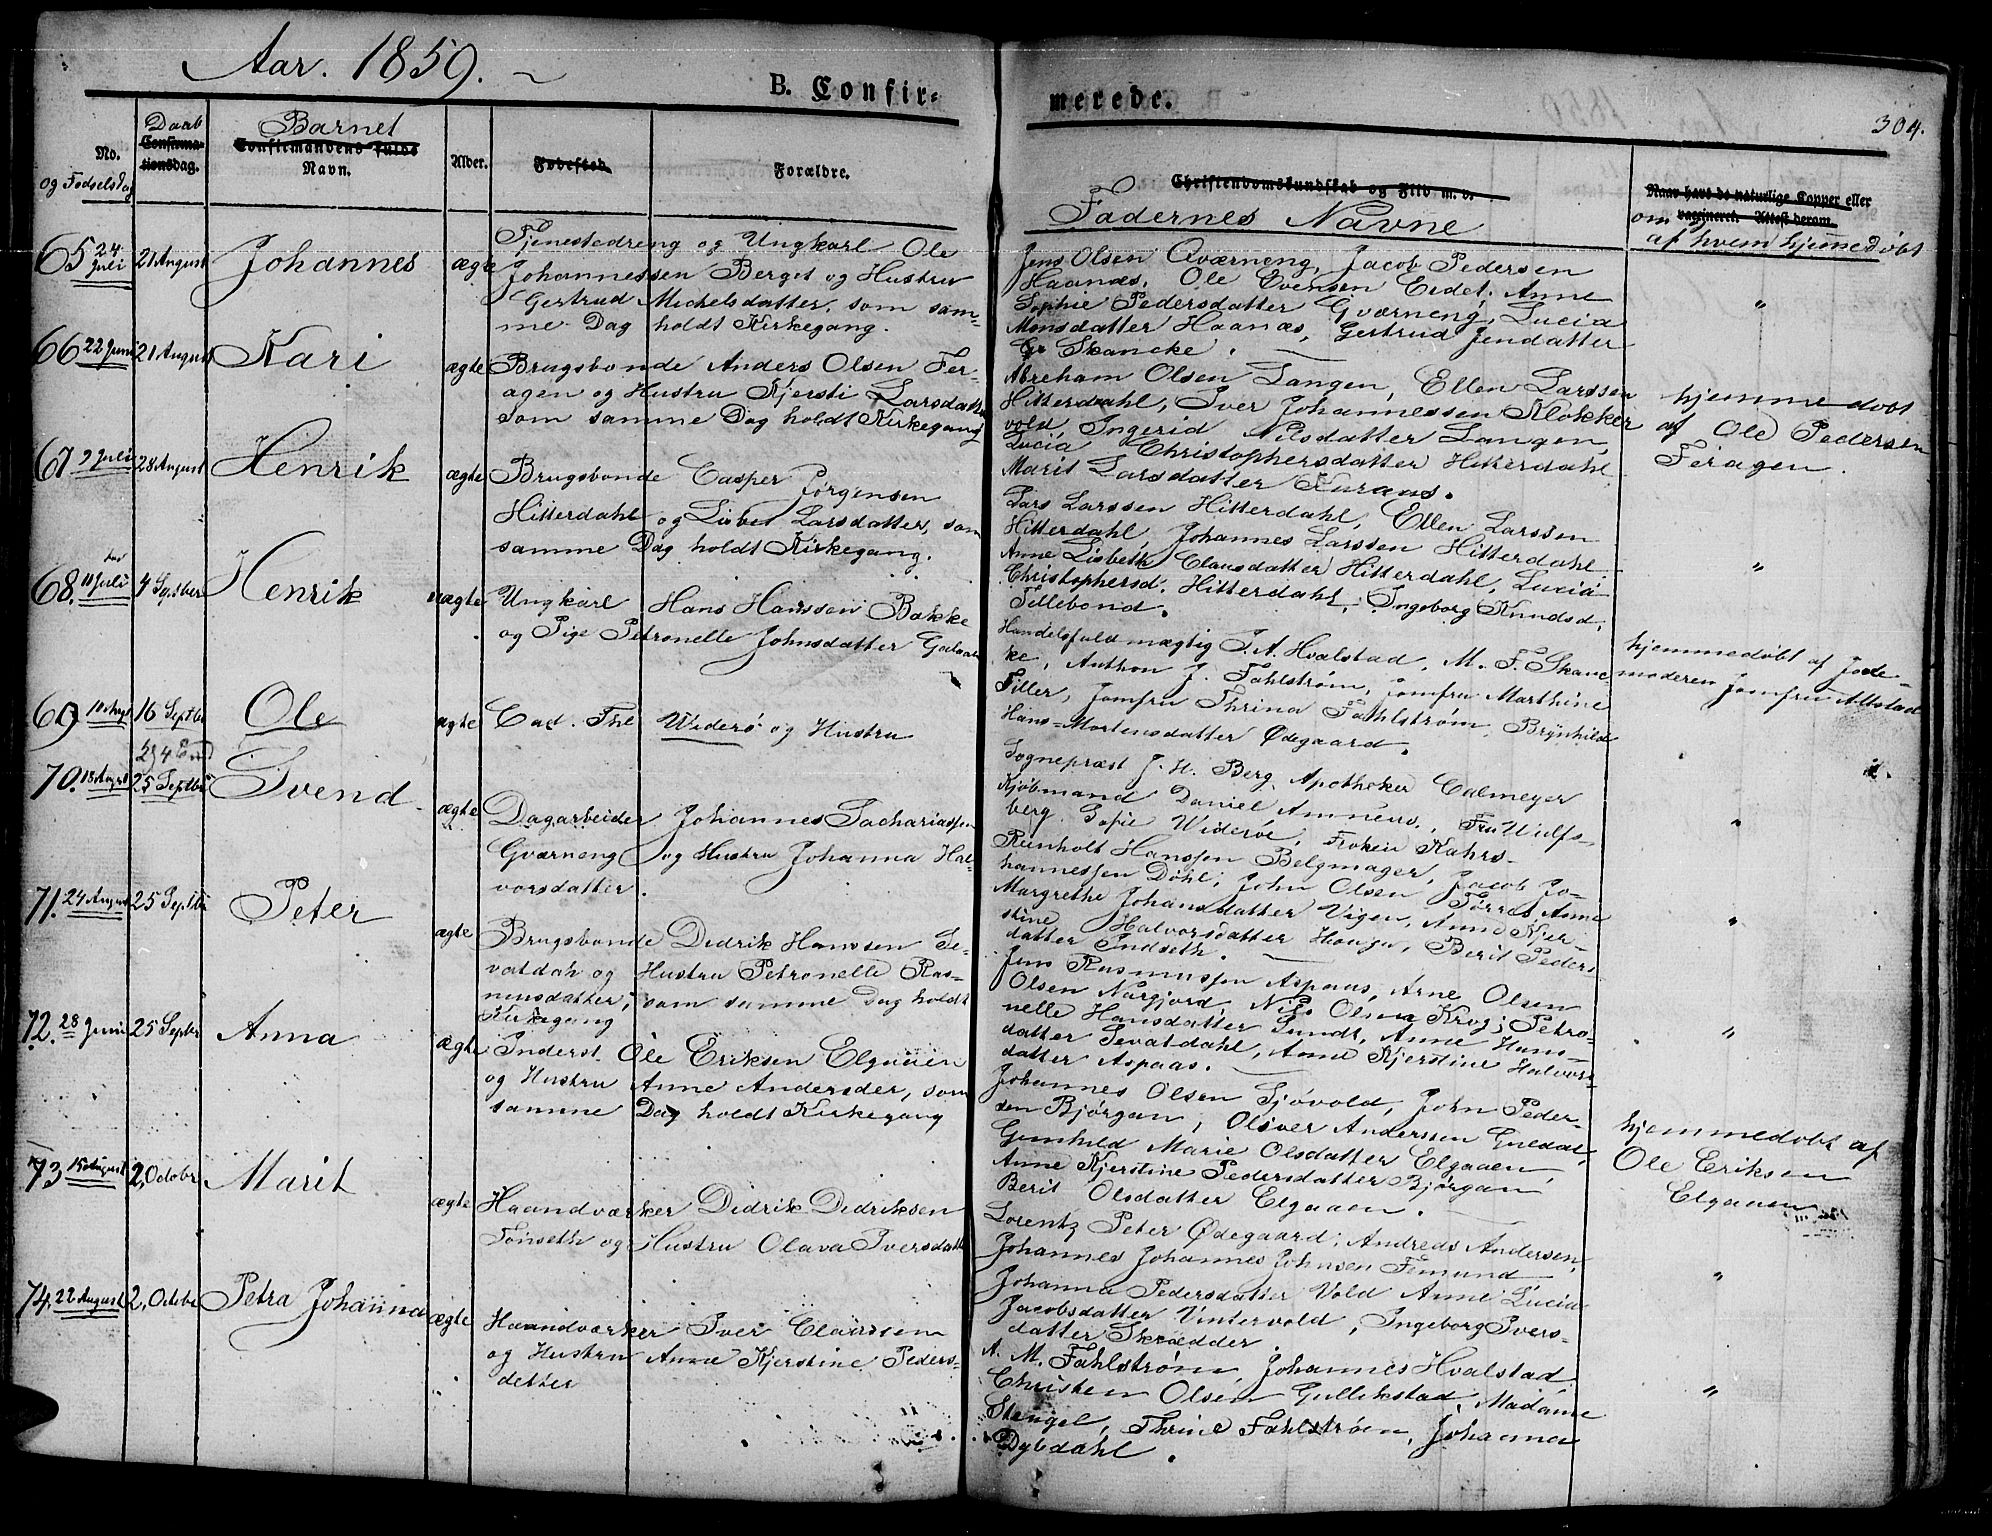 Aar. 1859.
B. Confir=
merede.
304.
No.
og Fødselsdag
Daab
Confirma-
tionsdag.
Barnet
Confirmandens fulde
Navn.
Alder.
Fødested.
Forældre.
Christendomskundskab og Flid m. v.
Fadernes Navne
Naar havt de naturlige Kopper eller
om vaccineret. Attest derom.
af hvem hjemmedøbt
65 24 Juli
21 August
Johannes
ægte
Tjenestedreng og Ungkarl Ole
Johannessen Berget og Hustru
Gertrud Michelsdatter, som sam-
me Dag holdt Kirkegang.
Jens Olsen Qværneng, Jacob Pedersen
Haanæs, Ole Evensen Eidet, Anne
Sophie Pedersdatter Gværneng, Lucia
Monsdatter Haanæs, Gertrud Jensdatter
Skancke.
"
66 22 Juni
21 August
Kari
ægte
Brugsbonde Anders Olsen Fer-
agen og Hustru Kjersti Larsdatter
som samme Dag holdt Kirkegang
Abraham Olsen Langen, Ellen Larssen
Hitterdahl, Iver Johannessen Klokker
vold, Ingerid Nilsdatter Langen,
Lucia Christophersdatter Hitterdahl
Marit Larsdatter Kuraas.
hjemmedøbt
af Ole Pedersen
Feragen.
67 9 Juli
28 August
Henrik
ægte
Brugsbonde Casper Jørgensen
Hitterdahl og Lisbet Larsdatter, som
samme Dag holdt Kirkegang.
Lars Larssen Hitterdahl, Ellen Larssen
Hitterdahl, Johannes Larssen Hitterdahl
Anne Lisbeth Clausdatter Hitterdahl, Lucia
Christophersd. Hitterdahl, Ingeborg Knudsd.
Tillebond.
"
68. 11 Juli
4 Septber
Henrik
uægte
Ungkarl Hans Hanssen Bakke
og Pige Petronelle Johnsdatter
Handelsfuldmægtig I. A. Hvalstad, M. F. Skanc-
ke, Anthon J. Fahlstrøm, Jomfru Marthine
Tiller, Jomfru Thrina Fahlstrøm, Brynhild
Hans-Mortensdatter Ødegaard.
hjemmedøbt af Jode-
moderen Jomfru Alstad
69 10 Augt
16 Septbr
Ole
ægte
Cad. Thl Widerø og Hustru
Sognepræst J. H. Berg, Apotheker Calmeyer
Kjøbmand Daniel Amneus, Fru Wulfs-
berg, Sofie Widerøe, Frøken Kahrs-
"
70. 18 August
25 Septbr
Svend
ægte
Dagarbeider Johannes Sachariassen
Gværneng og Hustru Johanna Hal-
vorsdatter.
Reinholt Hanssen Belgmager, Jacob Jo-
hannessen Døhl, John Olsen Tørres, Anne
Margrethe Johansdatter Vigen, Anne Kjer-
stine Halvorsdatter Haugen, Berit Peders-
datter Indseth.
"
71. 24 August
25 Septbr
Peter
ægte
Brugsbonde Didrik Hansen Se-
vatdah og Hustru Petronelle Ras-
musdatter, som samme Dag holdt
Kirkegang
Jens Rasmussen Aspaas, Arne Olsen
Olsen Norgjord, Nils Olsen Krog, Petro-
nelle Hansdatter Sundt, Anne Hans-
datter Sevatdahl, Anne Kjerstine Halvors-
datter Aspaas.
"
72. 28 Juni
25 Septbr
Anna
ægte
Inderst Ole Eriksen Elgaaen
og Hustru Anne Andersder, som
samme Dag holdt Kirkegang
Johannes Olsen Sjøvold, John Peder-
sen Bjørgan, Oliver Anderssen Guldal,
Gunhild Marie Olsdatter Elgaaen,
Anne Kjerstine Pedersdatter Bjørgan
Berit Olsdatter Elgaaen.
"
hjemmedøbt af
Ole Eriksen
Elgaaen
73 15 August
2, October
Marit
ægte
Haandværker Didrik Didriksen
Tønseth og Hustru Olava Iversdatter
Lorentz Peter Ødegaard, Andreas Andersen,
Johannes Johannes Johnsen Femund
Johanna Pedersdatter Vold Anne Lucia
Jacobsdatter Vintervold, Ingeborg Ivers-
datter Skrædder.
"
74. 22 August
2, October
Petra Johanna
ægte
Haandværker Iver Claussen
og Hustru Anne Kjerstine Peders-
datter
A. M. Fahlstrøm, Johannes Hvalstad
Christen Olsen Gullikstad, Madame
Stengel, Thrine Fahlstrøm, Johanna
Dybdahl.
"